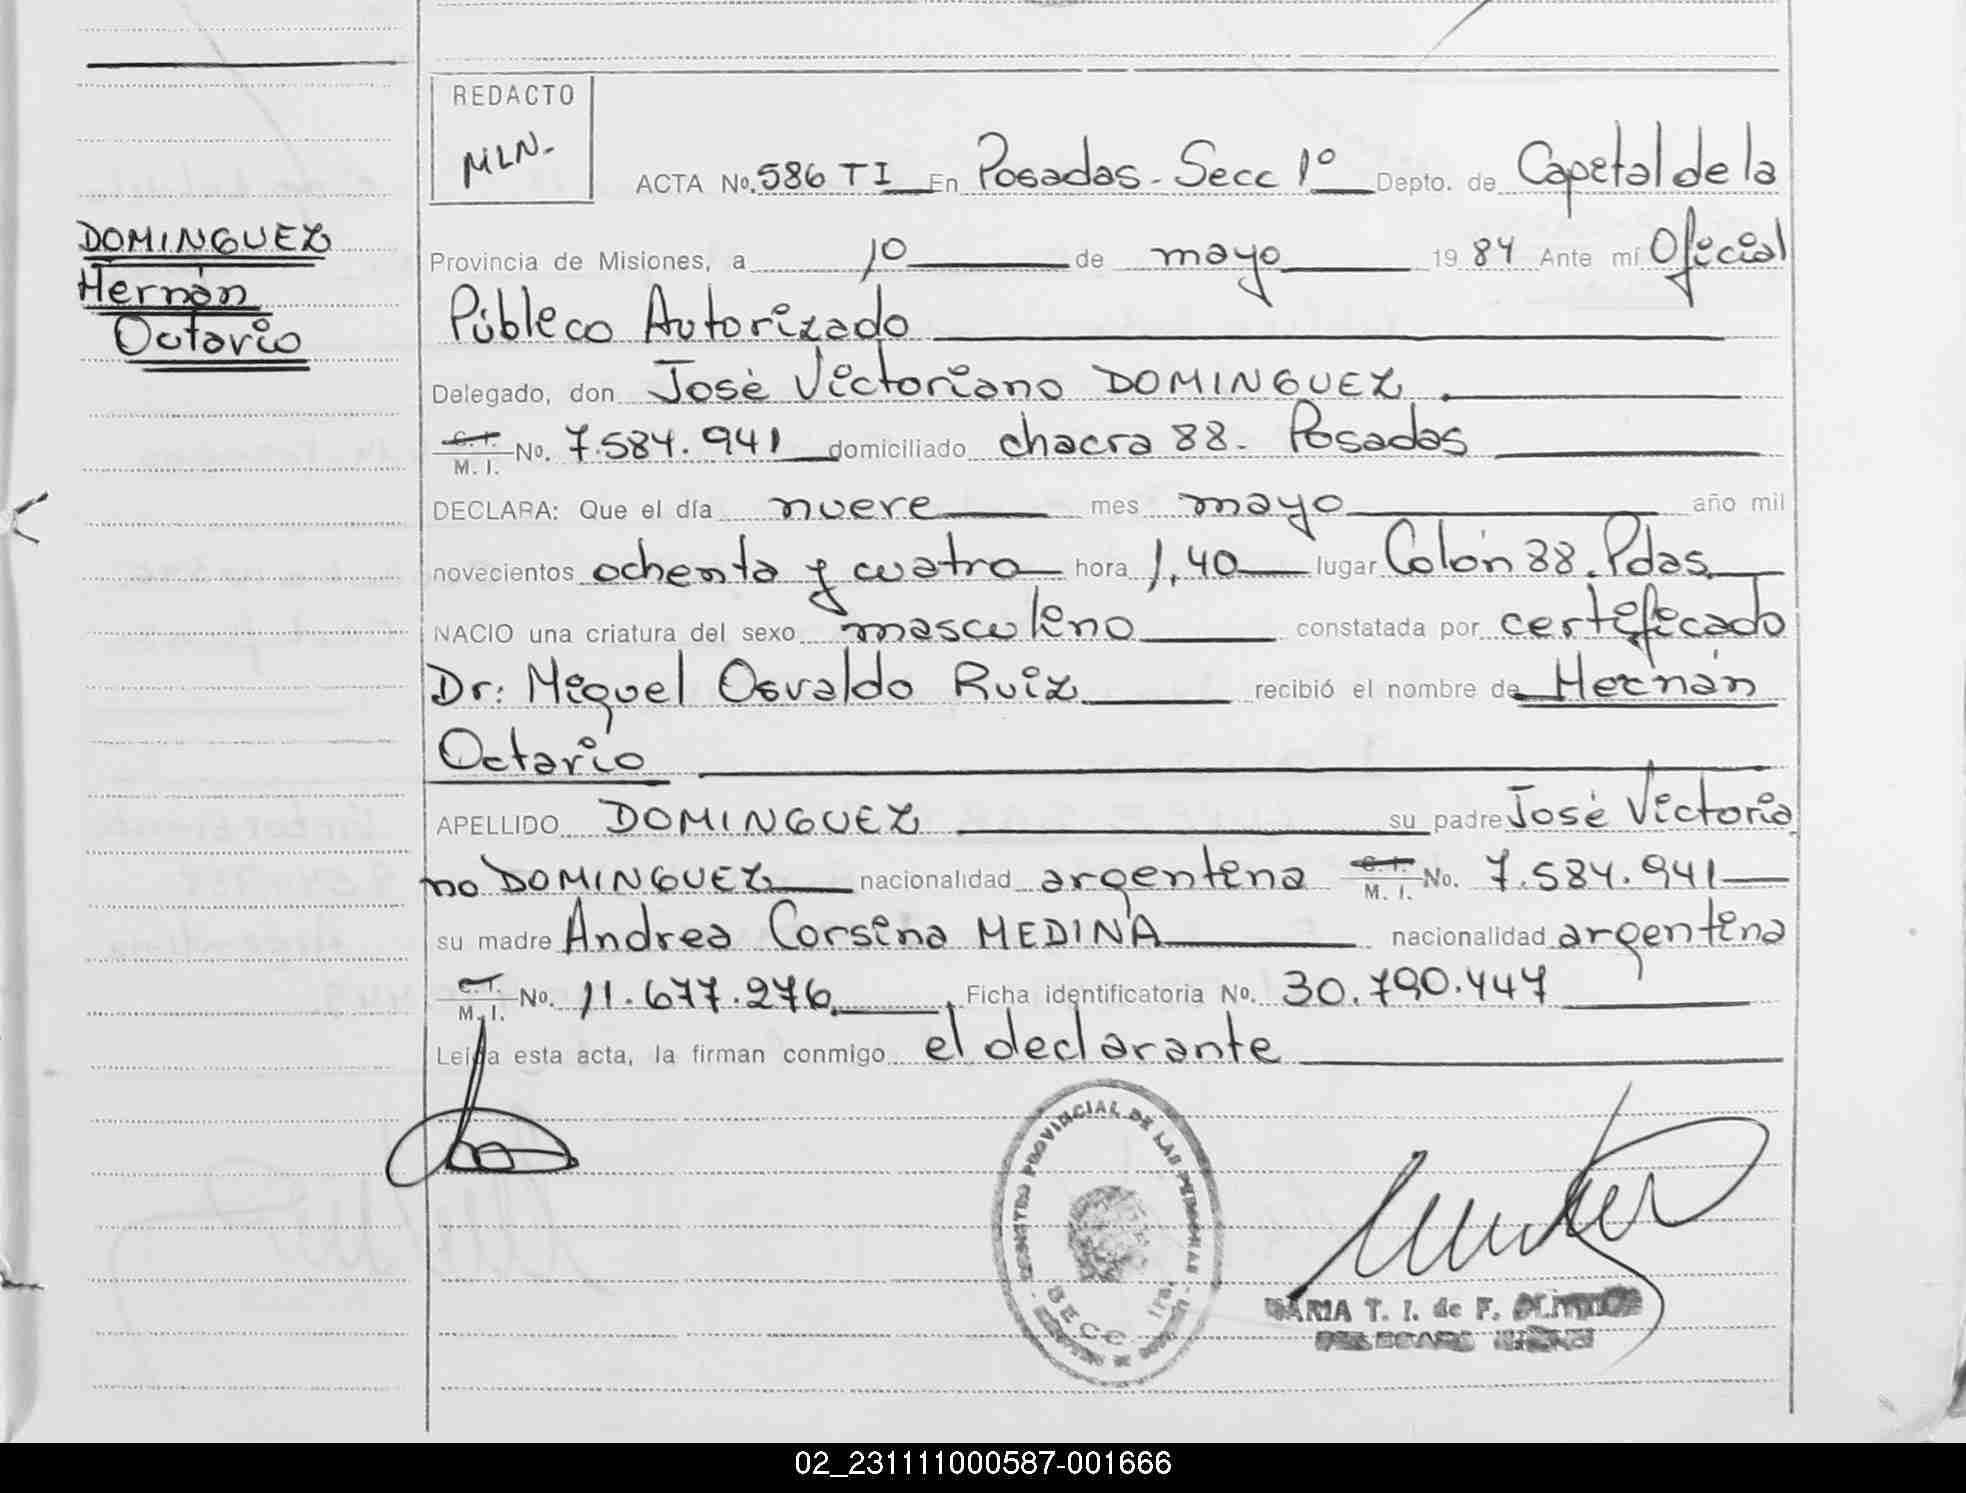 REDACTO
MLN-
ACTA No. 586 TI En Posadas - Secc 1º Depto. de Capital de la
DOMINGUEZ
Hernán
Octavio
Provincia de Misiones, a 10 de mayo 1984 Ante mí Oficial
Público Autorizado
Delegado, don José Victoriano DOMINGUEZ
C. I.
M. I. No. 7.584.941 domiciliado chacra 88 - Posadas
DECLARA: Que el día nueve mes mayo año mil
novecientos ochenta y cuatro hora 1,40 lugar Colón 88. Pdas.
NACIO una criatura del sexo masculino constatada por certificado
Dr: Miguel Osvaldo Ruiz recibió el nombre de Hernán
Octavio
APELLIDO DOMINGUEZ su padre José Victoria
no DOMINGUEZ nacionalidad argentina C. I. M. I. No. 7.584.941
su madre Andrea Corsina MEDINA nacionalidad argentina
C. I.
M. I. No. 11.677.276. Ficha identificatoria No. 30.790.447
Leída esta acta, la firman conmigo el declarante
REGISTRO PROVINCIAL DE LAS PERSONAS
SECC 1ra.
MARIA T. I. de F.
02_231111000587-001666